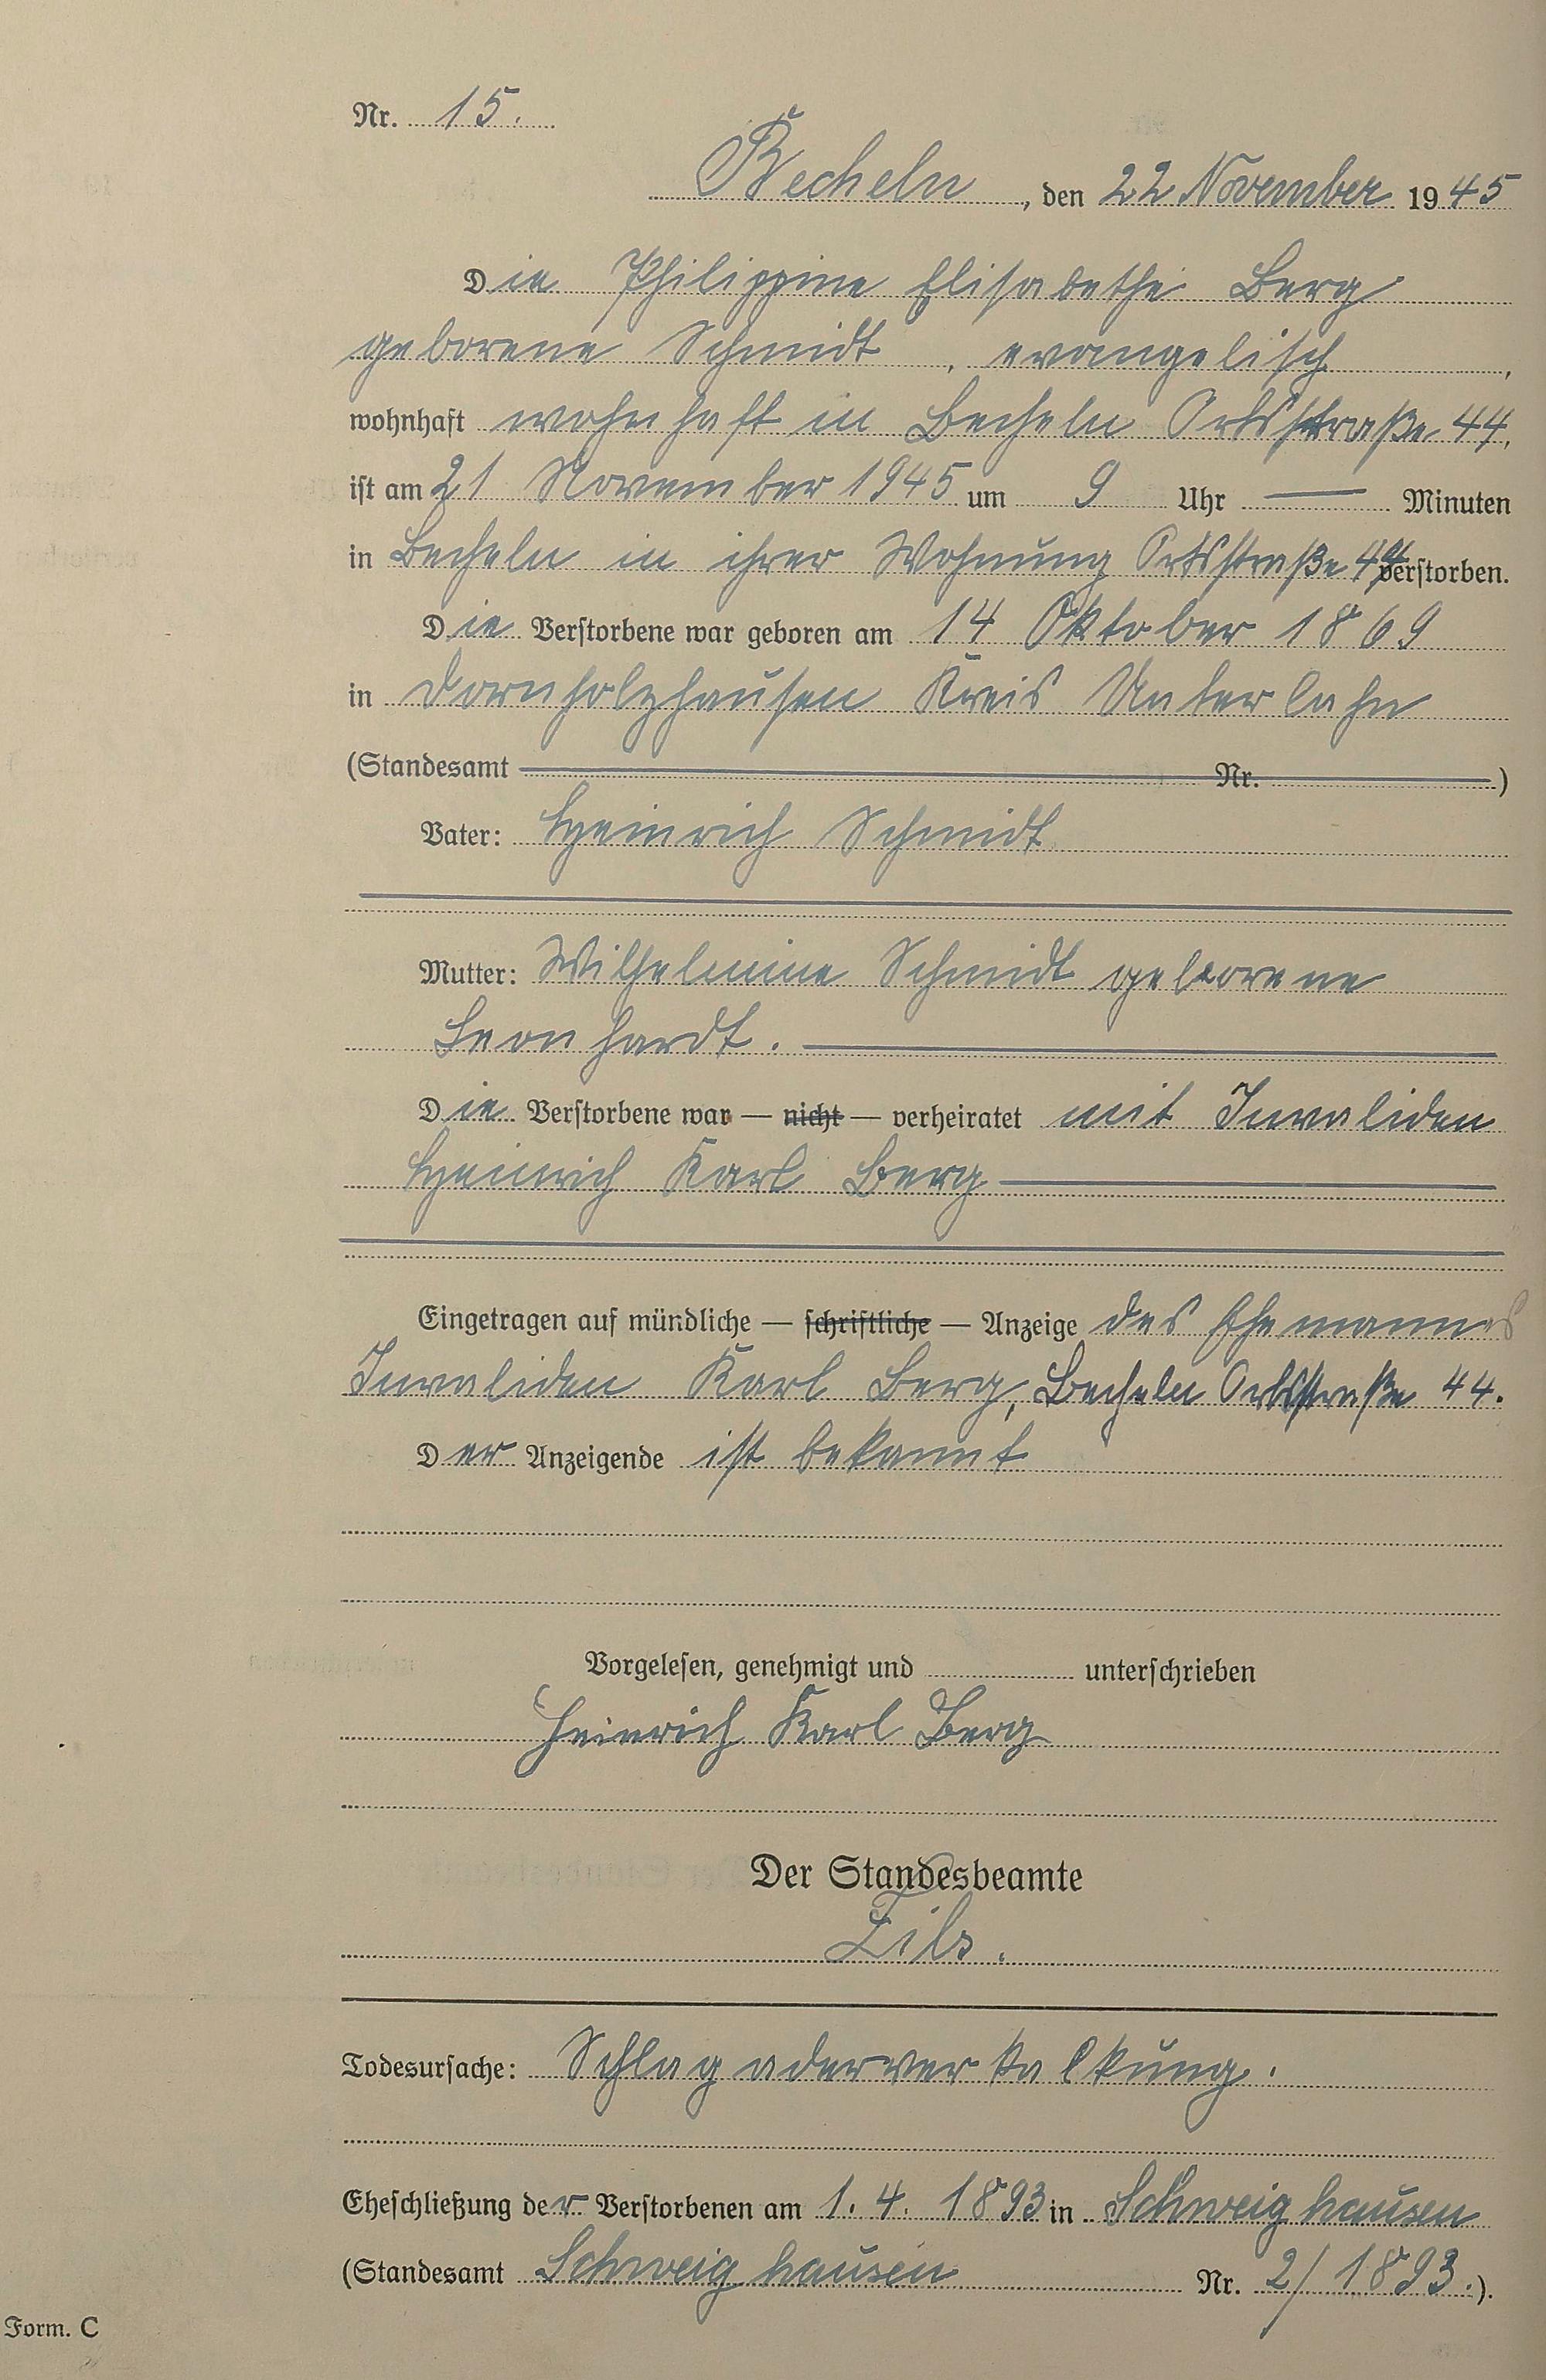 Nr. 15.
Becheln, den 22 November 1945
Die Philippine Elisabethe Berg
geborene Schmidt, evangelisch,
wohnhaft wohnhaft in Becheln Ortsstraße 44,
ist am 21 November 1945 um 9 Uhr — Minuten
in Becheln in ihrer Wohnung Ortsstraße 44 verstorben.
Die Verstorbene war geboren am 14 Oktober 1869
in Dornholzhausen Kreis Unterlahn
(Standesamt Nr. )
Vater: Heinrich Schmidt
Mutter: Wilhelmine Schmidt geborene
Leonhardt.
Die Verstorbene war — nicht — verheiratet mit Invaliden
Heinrich Karl Berg
Eingetragen auf mündliche — schriftliche — Anzeige des Ehemannes
Invaliden Karl Berg, Becheln Ortsstraße 44.
Der Anzeigende ist bekannt
Vorgelesen, genehmigt und unterschrieben
Heinrich Karl Berg
Der Standesbeamte
Todesursache: Schlagaderverkalkung.
Eheschließung der Verstorbenen am 1.4.1893 in Schweighausen
(Standesamt Schweighausen Nr. 2/1893.).
Form. C